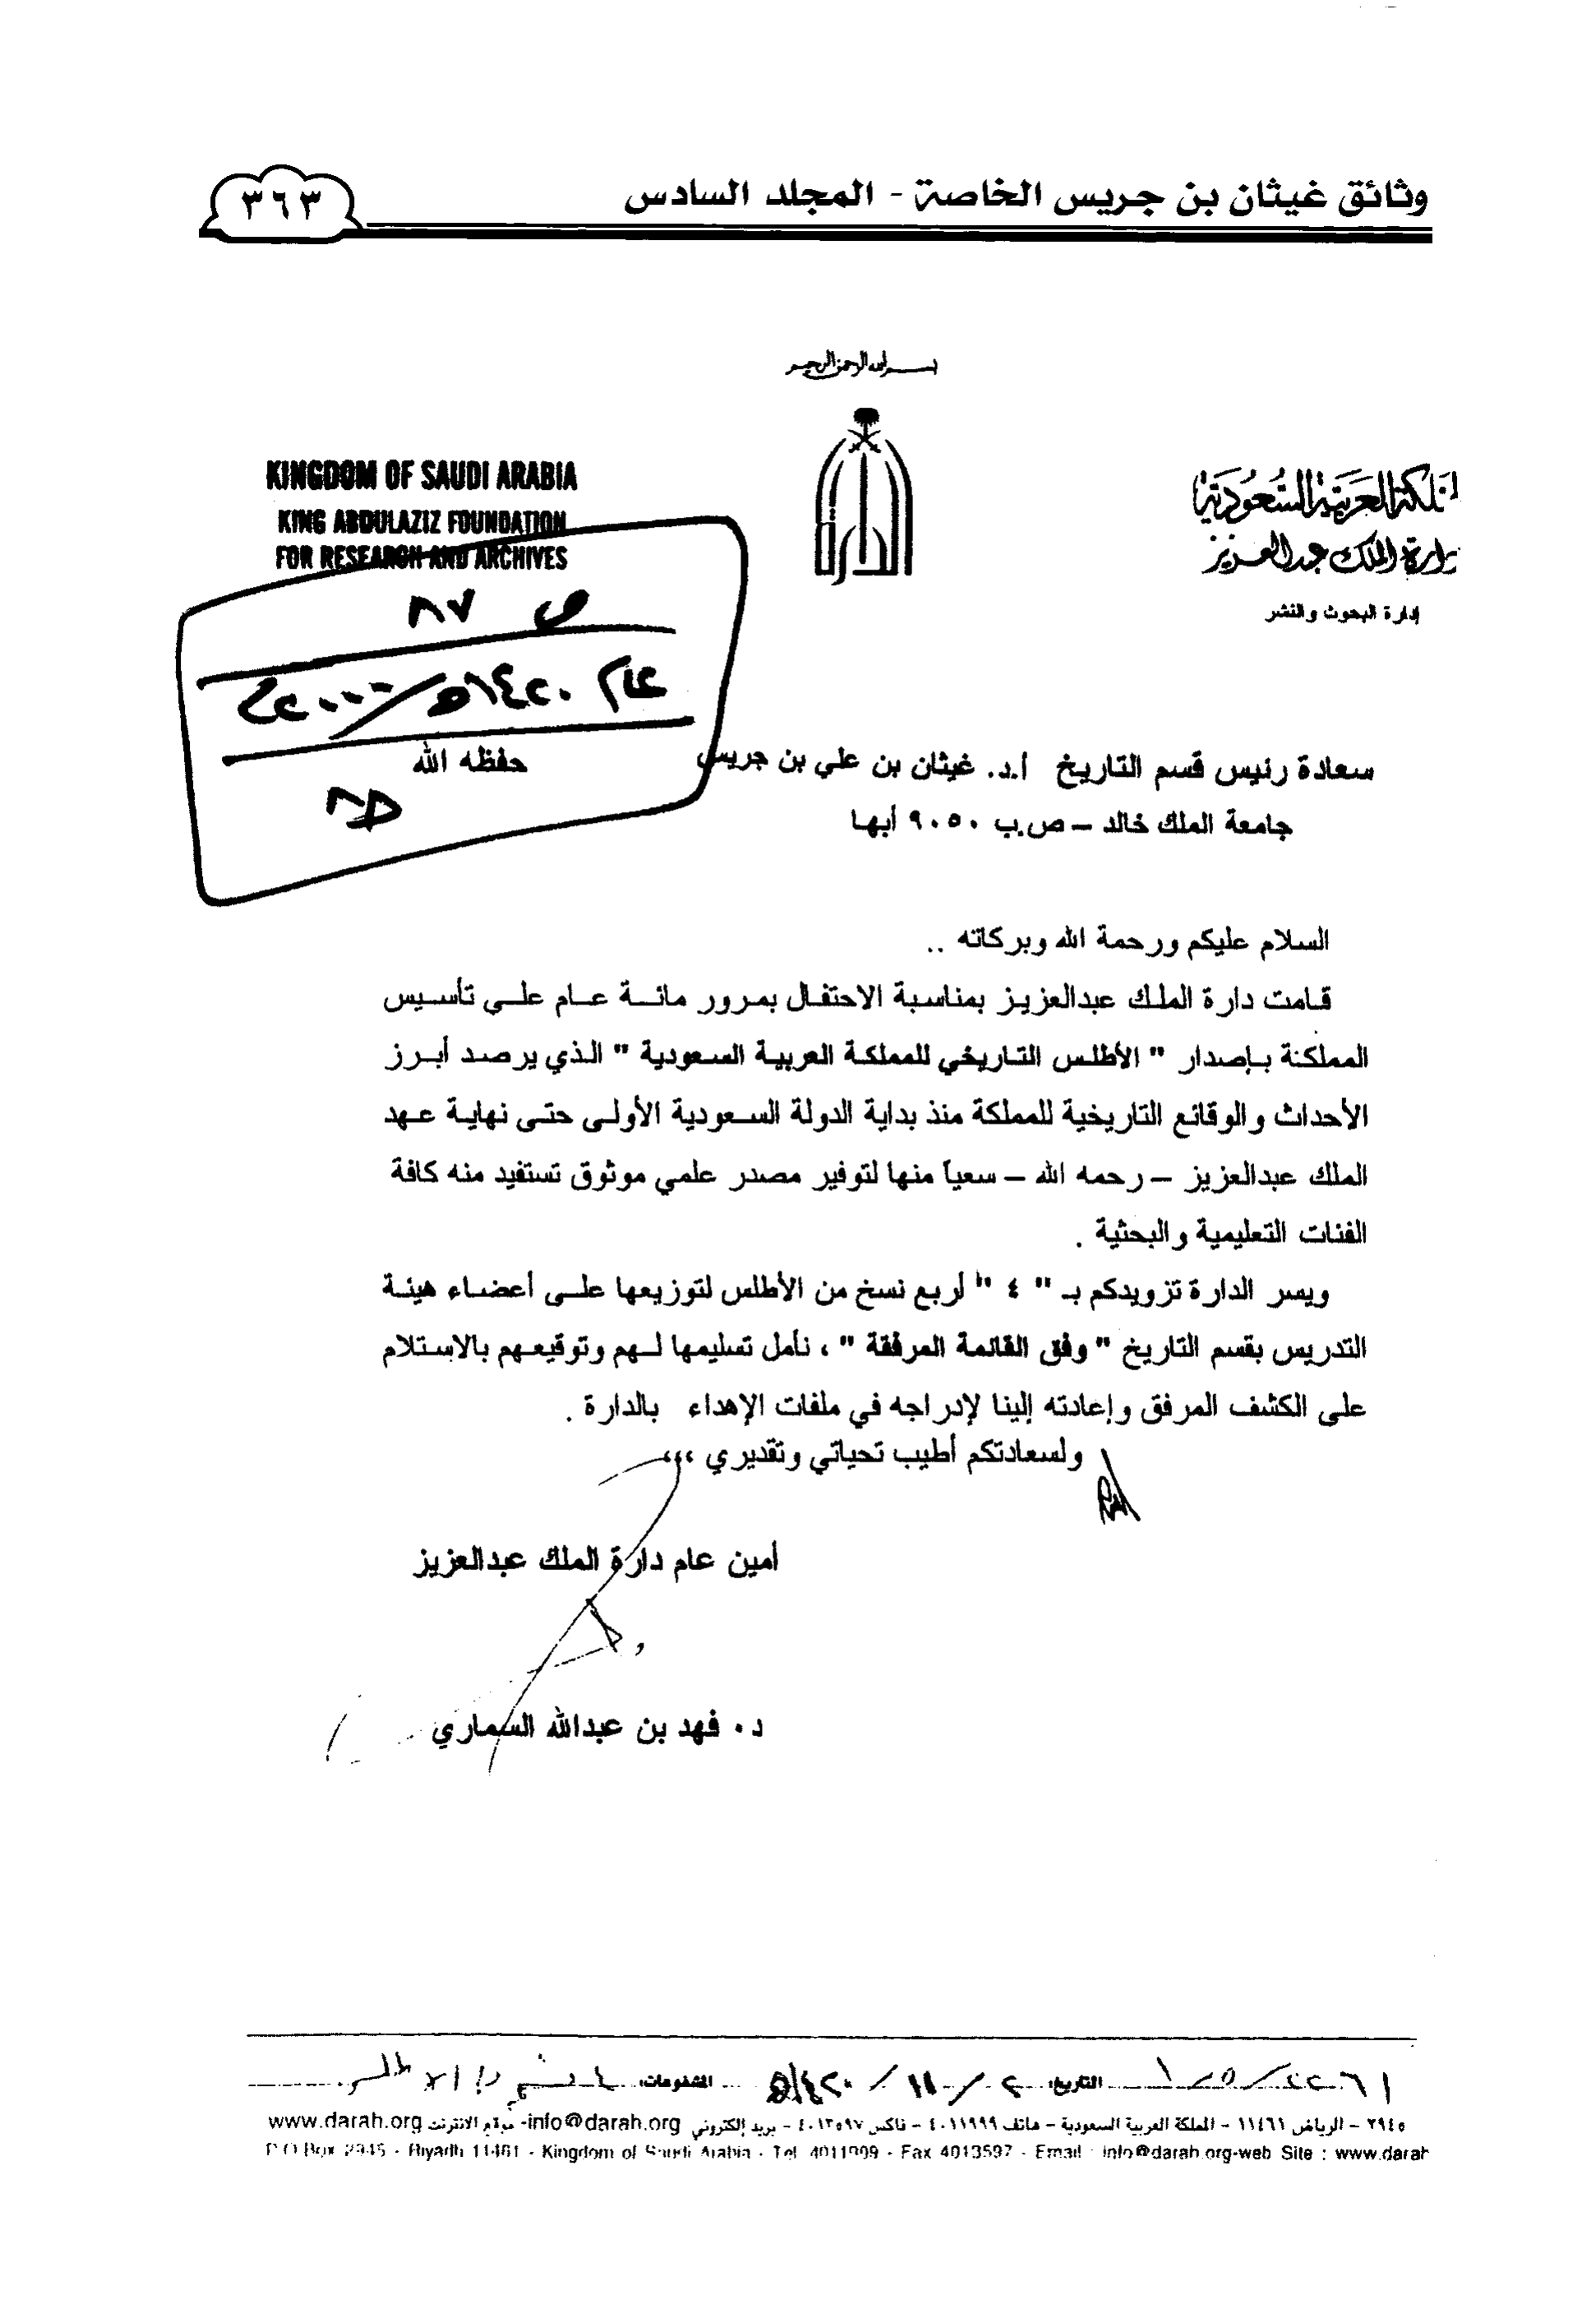 وثائق غيثان بن جريس الخاصة - المجلد السادس
٣٦٣
بسم الله الرحمن الرحيم
KINGDOM OF SAUDI ARABIA
KING ABDULAZIZ FOUNDATION
FOR RESEARCH AND ARCHIVES
المملكة العربية السعودية
دارة الملك عبدالعزيز
إدارة البحوث والنشر
ص ٨٧
عام ١٤٢٠هـ/٢٠٠٠م
سعادة رئيس قسم التاريخ أ.د. غيثان بن علي بن جريس حفظه الله
جامعة الملك خالد – ص.ب ٩٠٥٠ أبها
السلام عليكم ورحمة الله وبركاته ..
قامت دارة الملك عبدالعزيز بمناسبة الاحتفال بمرور مائة عام على تأسيس
المملكة بإصدار " الأطلس التاريخي للمملكة العربية السعودية " الذي يرصد أبرز
الأحداث والوقائع التاريخية للمملكة منذ بداية الدولة السعودية الأولى حتى نهاية عهد
الملك عبدالعزيز – رحمه الله – سعياً منها لتوفير مصدر علمي موثوق تستفيد منه كافة
الفئات التعليمية والبحثية .
ويسر الدارة تزويدكم بـ " ٤ " أربع نسخ من الأطلس لتوزيعها على أعضاء هيئة
التدريس بقسم التاريخ " وفق القائمة المرفقة " ، نأمل تسليمها لهم وتوقيعهم بالاستلام
على الكشف المرفق وإعادته إلينا لإدراجه في ملفات الإهداء بالدارة .
ولسعادتكم أطيب تحياتي وتقديري ،،،
أمين عام دارة الملك عبدالعزيز
د. فهد بن عبدالله السماري
التاريخ: ٢ / ١١ / ١٤٢٠هـ المشفوعات:
٢٩٤٥ – الرياض ١١٤٦١ – المملكة العربية السعودية – هاتف ٤٠١١٩٩٩ – فاكس ٤٠١٣٥٩٧ – بريد إلكتروني info@darah.org- موقع الانترنت www.darah.org
P.O Box 2945 - Riyadh 11461 - Kingdom of Saudi Arabia - Tel 4011999 - Fax 4013597 - Email : info@darah.org-web Site : www.darah